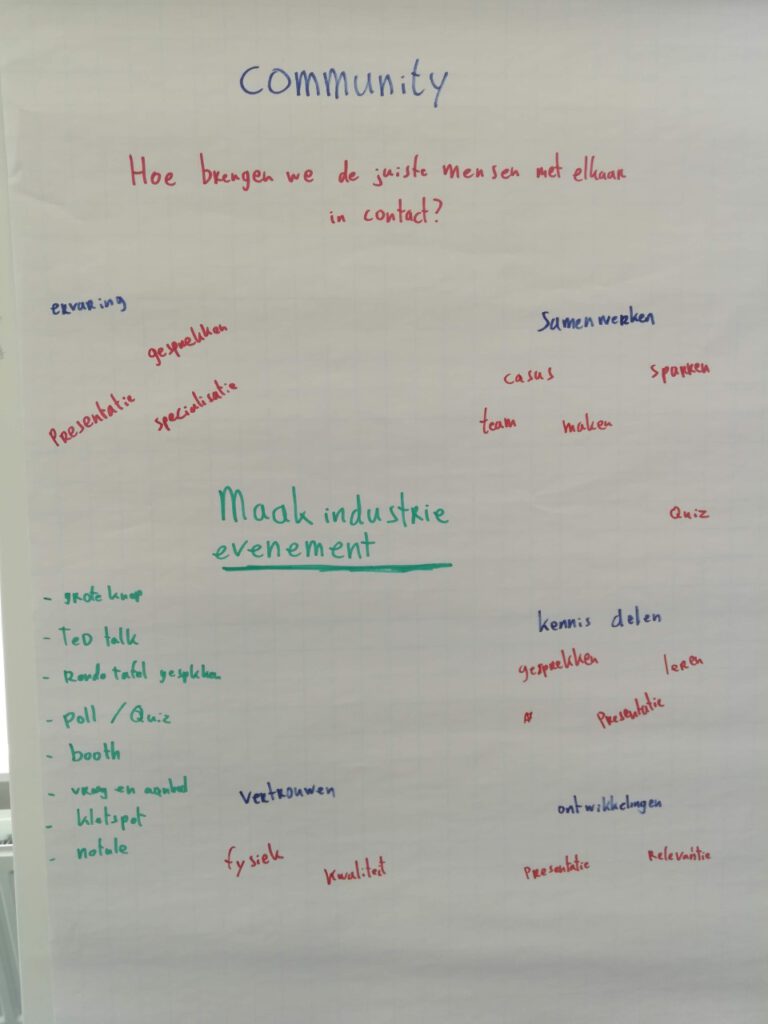 community
Hoe brengen we de juiste mensen met elkaar
in contact?
ervaring
gesprekken
Presentatie
specialisatie
Samenwerken
casus
sparren
team
maken
Quiz
Maakindustrie
evenement
- grote knop
- TED talk
- Ronde tafel
- Poll / Quiz
- booth
- vraag en aanbod
- kletspot
kennis delen
gesprekken
leren
Presentatie
vertrouwen
fysiek
kwaliteit
ontwikkelingen
Presentatie
Relevantie